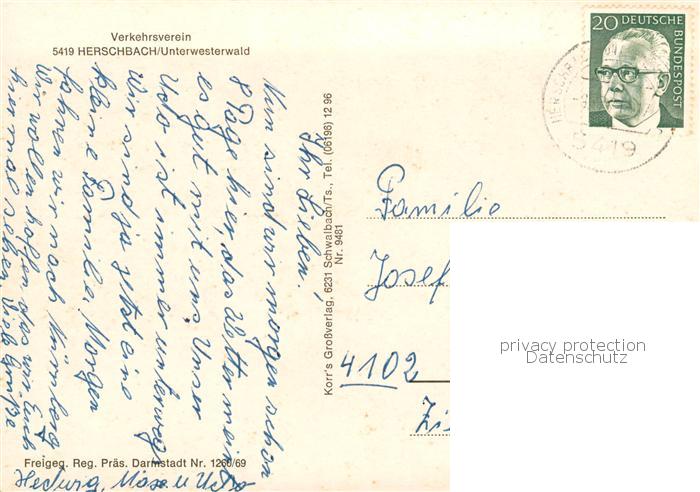 Verkehrsverein
5419 HERSCHBACH/Unterwesterwald
Ihr Lieben!
Nun sind wir morgen schon
8 Tage hier, das Wetter meint
es gut mit uns. Unser
Udo ist immer unterwegs
Wir sind ja jetzt eine
kleine Familie, Morgen
fahren wir nach Nürnberg
Wir wollen hoffen das wir Euch
hier mal sehen. Viele Grüße
Hedwig, u Udo
Freigeg. Reg. Präs. Darmstadt Nr. 1260/69
Korr's Großverlag, 6231 Schwalbach/Ts., Tel. (06196) 12 96
Nr. 9481
20 DEUTSCHE
BUNDESPOST
5419
Familie
Josef
4102
privacy protection
Datenschutz